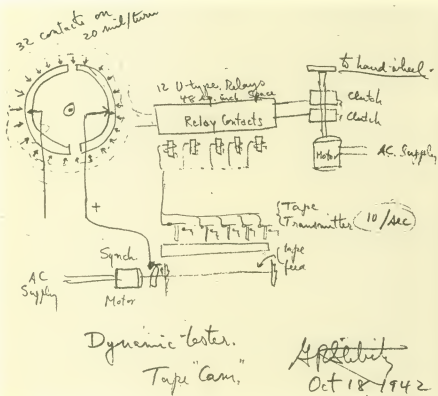 32 contacts on
20 mil/turn
12 U-type Relays
48 sq. inch space
Relay Contacts
to hand-wheel.
Clutch
Clutch
Motor
AC. Supply
+
Tape
Transmitter 10/sec
tape
feed
Synch
Motor
AC
Supply
Dynamic tester.
Tape "Cam",
G R Stibitz
Oct 18 1942